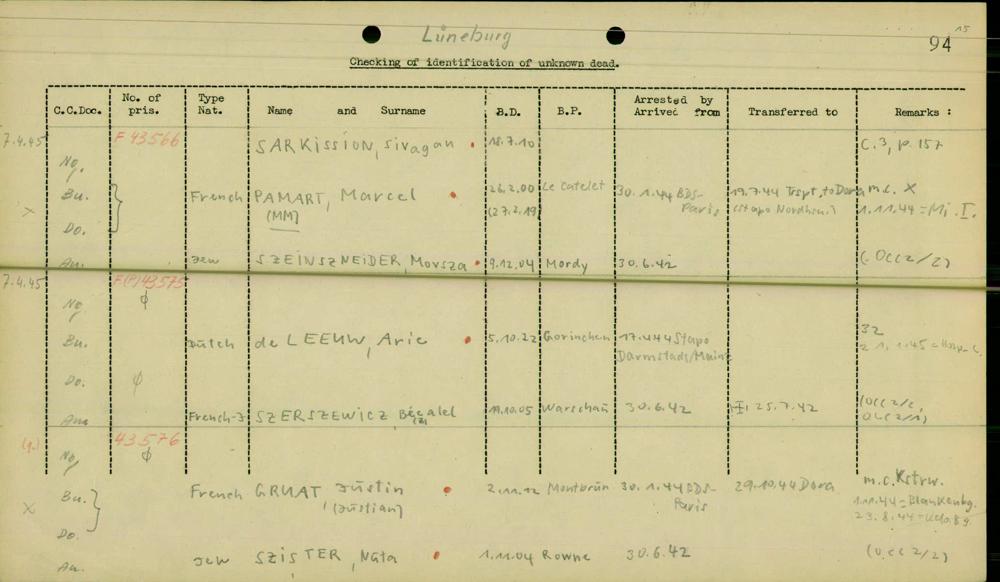 Lüneburg
94
15
Checking of identification of unknown dead.
C.C.Doc. No. of pris. Type Nat. Name and Surname B.D. B.P. Arrested by Arrived from Transferred to Remarks :
7.4.45 F 43566 SARKISSION, Sivagan 18.7.10 C.3, p. 157
No,
Bu. French PAMART, Marcel 26.2.00 Le Catelet 30.1.44 BDS- 19.7.44 Trspt. to Dora m.c. X
X (MM) (27.2.19) Paris (Stapo Nordhsn) 1.11.44 = Mi. I.
Do.
Au. Jew SZEINSZNEIDER, Movsza 9.12.04 Mordy 30.6.42 (OCC 2/2)
7.4.45 F(P)43575
No, φ
Bu. Dutch de LEEUW, Arie 5.10.22 Gorinchem 17.4.44 Stapo 32
Darmstadt/Mainz 21.1.45 = Hosp.
Do. φ
Au. French-J SZERSZEWICZ, Bécalel 11.10.05 Warschau 30.6.42 25.7.42 (OCC 2/2,
(z) OCC 2/1)
43576
No, φ
Bu. French GRUAT, Justin 2.11.12 Montbrun 30.1.44 BDS- 29.10.44 Dora m.c. Kstrw.
X (Justian) Paris 1.11.44 = Blankenbg.
23.8.44 =
Do.
Au. Jew SZISTER, Nuta 1.11.04 Rowne 30.6.42 (OCC 2/2)